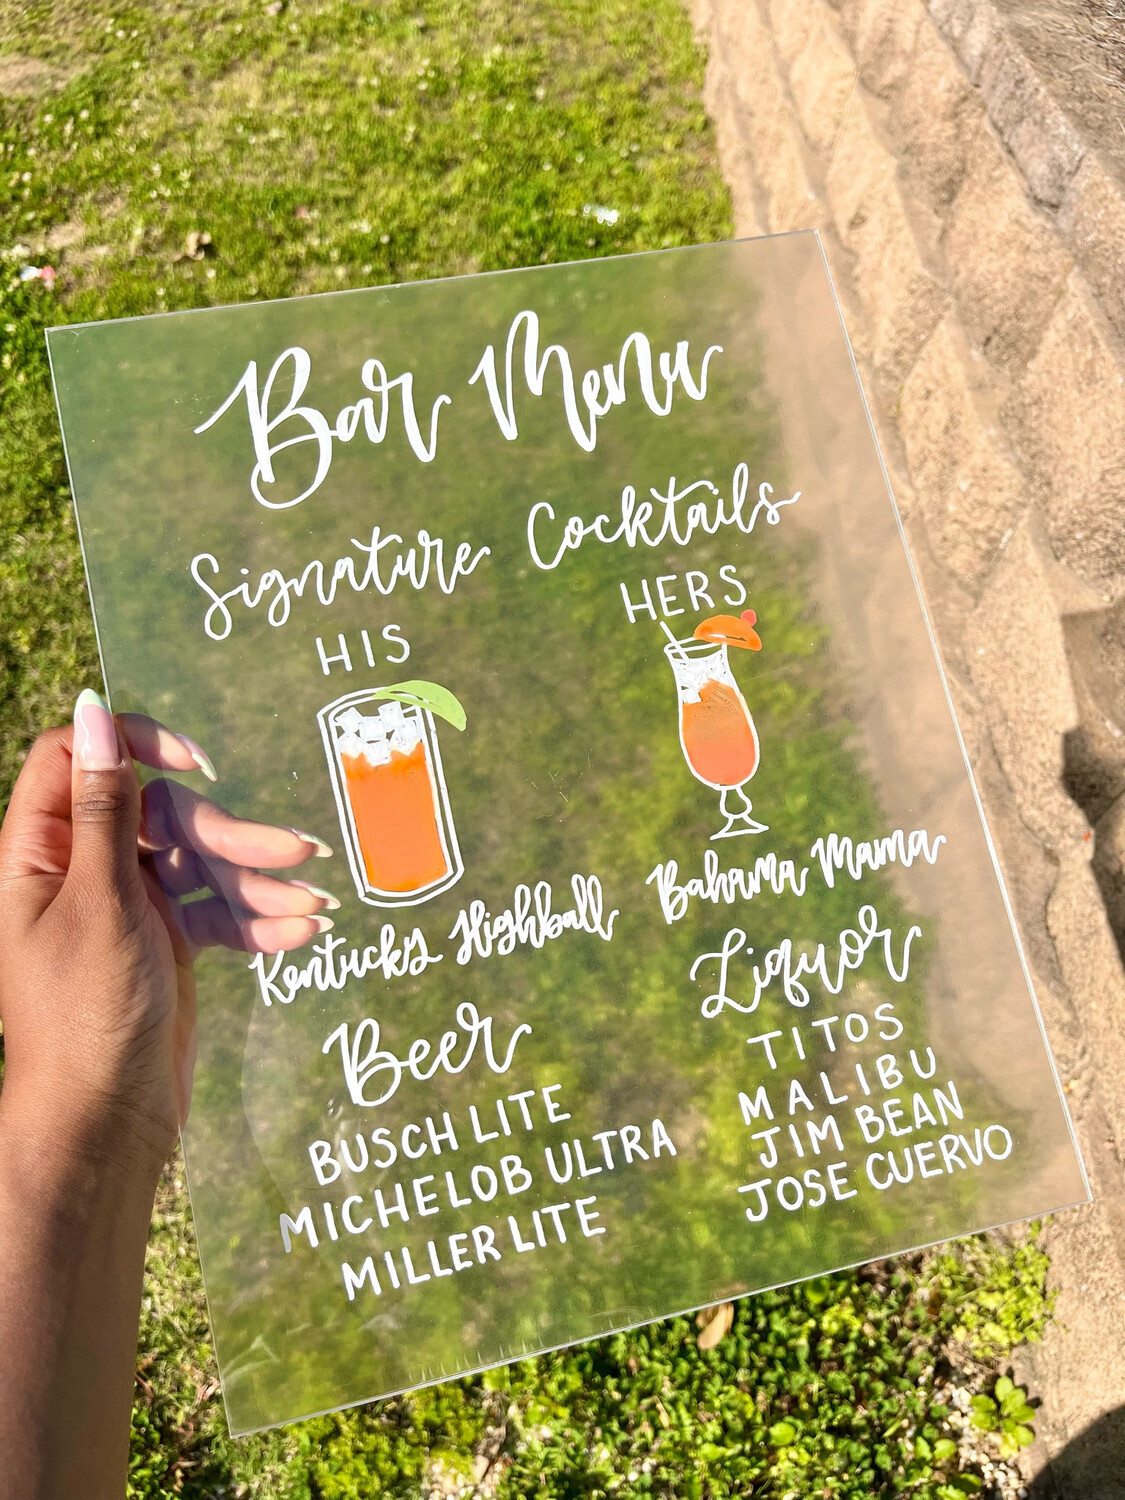 Bar Menu
Signature Cocktails
HIS
HERS
Kentucky Highball
Bahama Mama
Beer
BUSCH LITE
MICHELOB ULTRA
MILLER LITE
Liquor
TITOS
MALIBU
JIM BEAN
JOSE CUERVO